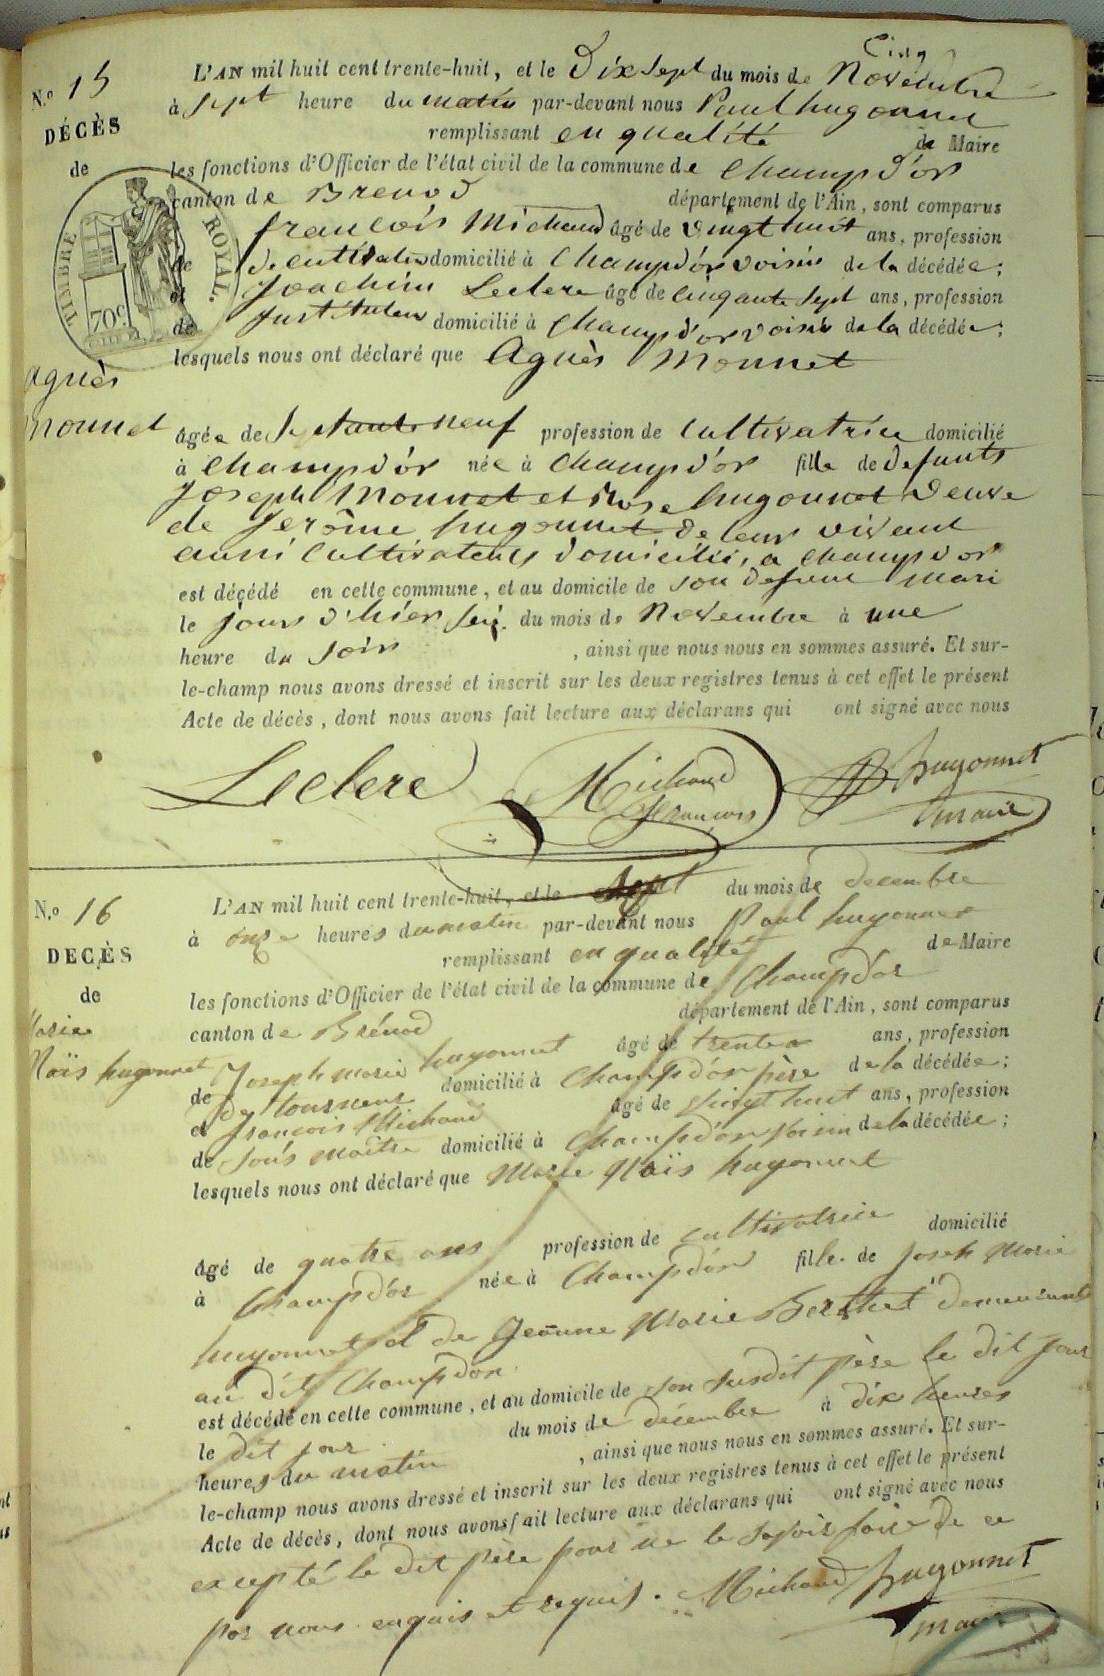 Cinq
N.° 15
L'AN mil huit cent trente-huit, et le Dix Sept du mois de Novembre
à Sept heure du matin par-devant nous Paul hugonnet
DÉCÈS
remplissant en qualité de Maire
de
les fonctions d'Officier de l'état civil de la commune de Champd'or
canton de Brenod département de l'Ain, sont comparus
TIMBRE ROYAL.
70c.
francois Michaud âgé de vingt huit ans, profession
de cultivateur domicilié à Champd'or voisin de la décédée;
et Joachim Leclerc âgé de cinquante sept ans, profession
de Instituteur domicilié à Champd'or voisin de la décédée;
lesquels nous ont déclaré que Agnès Monnet
Agnès
Monnet
âgée de Septante neuf profession de Cultivatrice domicilié
à Champd'or née à Champd'or fille de defunts
Joseph Monnet et Rose hugonnet veuve
de Jerôme hugonnet de leur vivant
aussi Cultivateurs domiciliés a Champd'or
est décédé en cette commune, et au domicile de son defunt mari
le jours d'hier Seize du mois de Novembre à une
heure du soir , ainsi que nous nous en sommes assuré. Et sur-
le-champ nous avons dressé et inscrit sur les deux registres tenus à cet effet le présent
Acte de décès, dont nous avons fait lecture aux déclarans qui ont signé avec nous
Leclerc Michaud francois hugonnet
maire
N.° 16
L'AN mil huit cent trente-huit, et le Sept du mois de decembre
à onze heures du matin par-devant nous Paul hugonnet
DECÈS
remplissant en qualité de Maire
de
les fonctions d'Officier de l'état civil de la commune de Champdor
Marie
Naïs hugonnet
canton de Brénod département de l'Ain, sont comparus
Joseph marie hugonnet âgé de trente ans, profession
de tourneur domicilié à Champdor père de la décédée;
et francois Michaud âgé de vingt huit ans, profession
de sous maître domicilié à Champdor voisin de la décédée;
lesquels nous ont déclaré que Marie Naïs hugonnet
âgé de quatre ans profession de cultivatrice domicilié
à Champdor née à Champdor fille de Joseph Marie
hugonnet et de Jeanne Marie Berthet demeurants
au dit Champdor
est décédé en cette commune, et au domicile de son susdit père le dit jour
le dit jour du mois de décembre à dix heures
heures du matin , ainsi que nous nous en sommes assuré. Et sur-
le-champ nous avons dressé et inscrit sur les deux registres tenus à cet effet le présent
Acte de décès, dont nous avons fait lecture aux déclarans qui ont signé avec nous
excepté le dit père pour ne le savoir faire de ce
par nous enquis et requis. Michaud hugonnet
maire